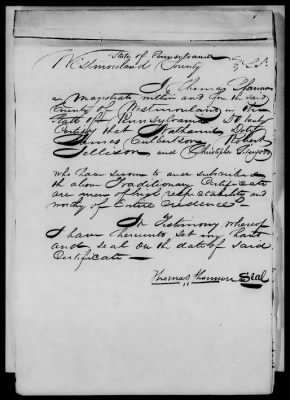 State of Pennsylvania
Westmoreland County
I Thomas Hannon
a Magistrate within and for the said
County of Westmoreland in the
State of Pennsylvania Do hereby
Certify that Nathaniel Doty
James Culbertson Robert
Jellison and Christopher
who have sworn to and subscribed
the above Traditionary Certificate
are men of high respectability and
worthy of Entire Credence
In Testimony whereof
I have hereunto set my hand
and seal on the date of said
Certificate
Thomas Hannon Seal